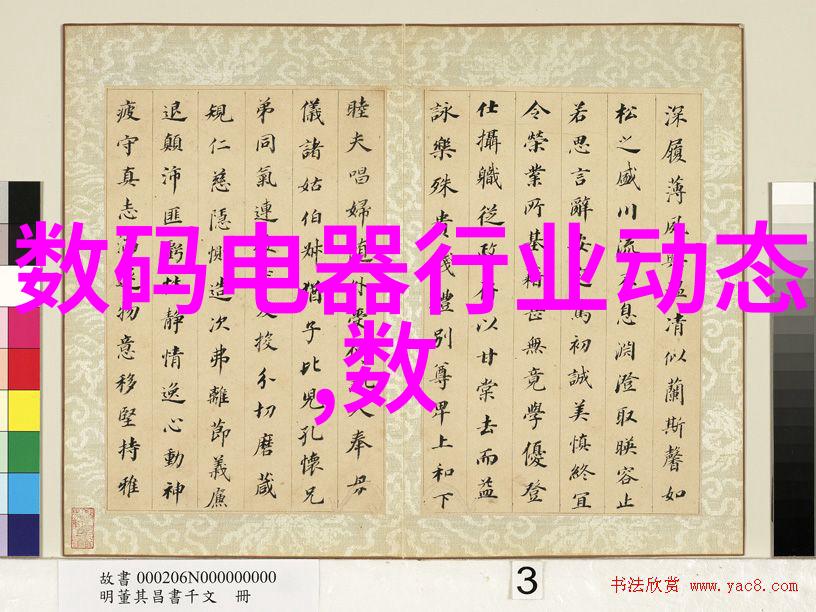 深履薄夙興清似蘭斯馨如
松之盛川流息淵澄取暎容止
若思言辭初誠美慎終宜
令榮業所基無竟學優登
仕攝職從政以甘棠去而益
詠樂殊貴別尊卑上和下
睦夫唱婦奉母
儀諸姑伯叔猶子比兒孔懷兄
弟同氣連投分切磨箴
規仁慈隱惻造次弗離節義廉
退顛沛匪虧靜情逸心動神
疲守真志物意移堅持雅
数码电器行业动态
,数
故書 000206N000000000
明董其昌書千文 冊
3
书法欣赏 www.yac8.com